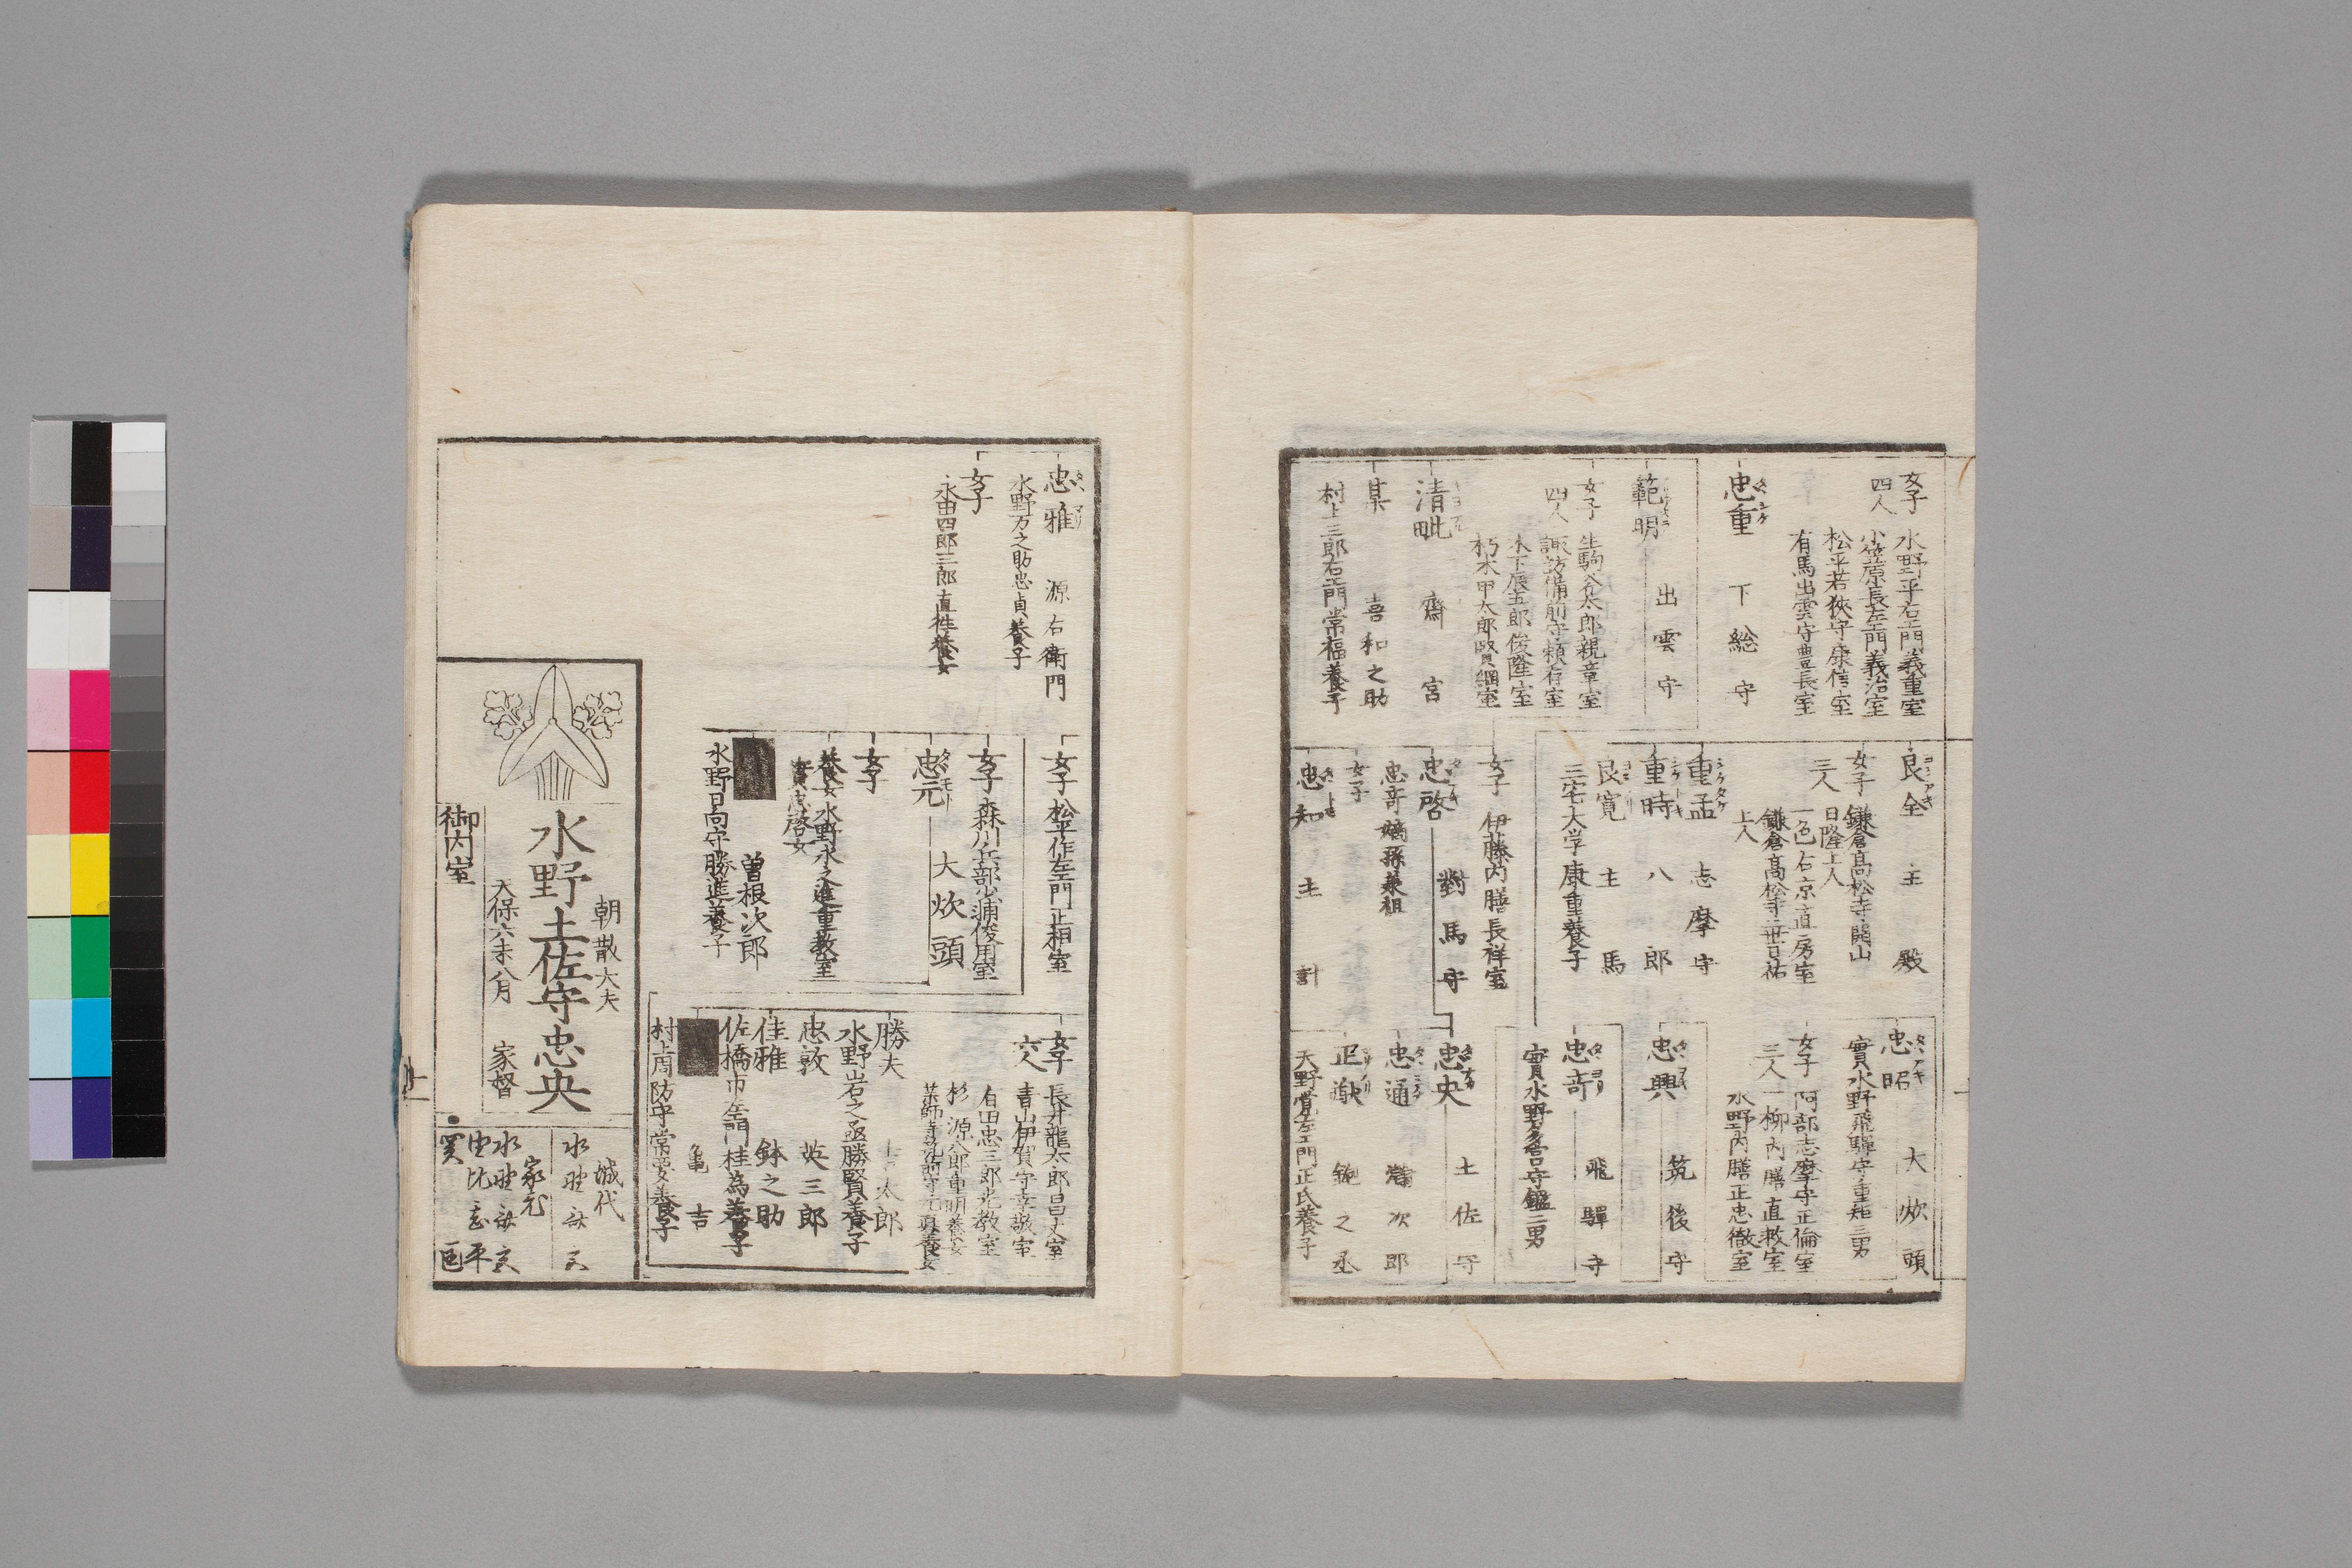 女子
四人
水野平右エ門義重室
小笠原長左エ門義治室
松平若狹守康信室
有馬出雲守豊長室
忠重
下総守
範明
出雲守
女子
四人
生駒
太郎親章室
諏訪備前守頼存室
木下辰五郎俊隆室
朽木甲太郎賢綱室
清毗
齋宮
某
喜和之助
村上三郎右エ門常福養子
良全
主殿
女子
三人
鎌倉髙松寺開山
日隆上人
一色右京直房室
鎌倉髙松寺二世日祐
上人
重孟
志摩守
重時
八郎
良寛
主馬
三宅大学康重養子
女子
伊藤内膳長祥室
忠啓
對馬守
忠竒嫡孫承祖
女子
忠知
主計
忠昭
大炊頭
實水野飛驒守重矩三男
女子
三人
阿部志摩守正倫室
一柳内膳直救室
水野内膳正忠徹室
忠興
筑後守
忠竒
飛驒守
實水野多宮守鑑二男
忠央
土佐守
忠通
次郎
正
鉋之丞
天野覚左エ門正氏養子
忠雅
源右衛門
水野万之助忠貞養子
女子
永田四郎三郎直性養女
女子
松平作左エ門正相室
女子
森川兵部少輔俊用室
忠元
大炊頭
女子
養女
水野水之進重教室
實忠啓女
曽根次郎
水野日向守勝進養子
女子
六人
長井龍太郎昌大室
青山伊賀守幸敬室
有田忠三郎光教室
杉源八郎重明養女
勝夫
太郎
水野岩之丞勝賢養子
忠敦
英三郎
佳雅
鉢之助
佐橋市左エ門桂為養子
亀吉
村上周防守常要養子
朝散大夫
水野土佐守忠央
天保六未八月
家督
御内室
城代
家元